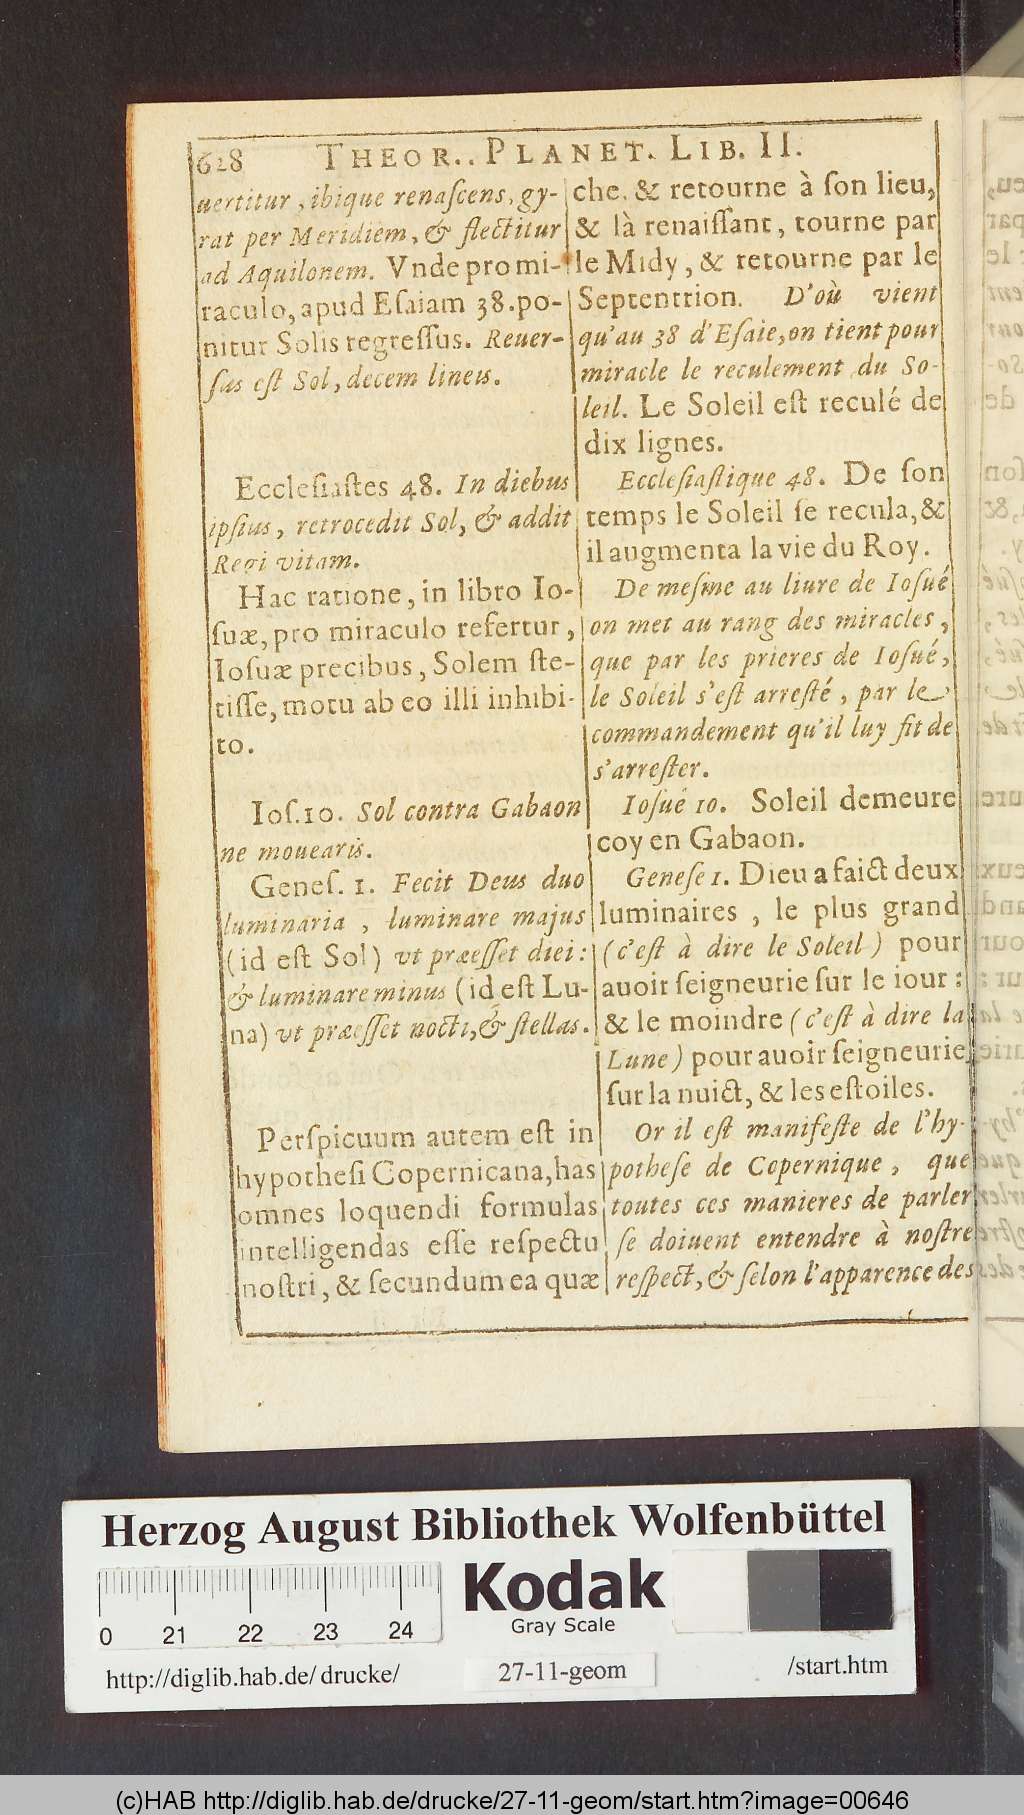 628 THEOR.. PLANET. LIB. II.
uertitur, ibique renaſcens, gy-
rat per Meridiem, & flectitur
ad Aquilonem. Vnde pro mi-
raculo, apud Eſaiam 38. po-
nitur Solis regreſſus. Reuer-
ſus eſt Sol, decem lineis.
Eccleſiaſtes 48. In diebus
ipſius, retrocedit Sol, & addit
Regi vitam.
Hac ratione, in libro Io-
ſuæ, pro miraculo refertur,
Ioſuæ precibus, Solem ſte-
tiſſe, motu ab eo illi inhibi-
to.
Ioſ. 10. Sol contra Gabaon
ne mouearis.
Geneſ. 1. Fecit Deus duo
luminaria, luminare majus
(id eſt Sol) vt præeſſet diei:
& luminare minus (id eſt Lu-
na) vt præeſſet nocti, & ſtellas.
Perſpicuum autem eſt in
hypotheſi Copernicana, has
omnes loquendi formulas
intelligendas eſſe reſpectu
noſtri, & ſecundum ea quæ
che. & retourne à ſon lieu,
& là renaiſſant, tourne par
le Midy, & retourne par le
Septentrion. D'où vient
qu'au 38 d'Eſaie, on tient pour
miracle le reculement du So-
leil. Le Soleil eſt reculé de
dix lignes.
Eccleſiaſtique 48. De ſon
temps le Soleil ſe recula, &
il augmenta la vie du Roy.
De meſme au liure de Ioſué
on met au rang des miracles,
que par les prieres de Ioſué,
le Soleil s'eſt arreſté, par le
commandement qu'il luy fit de
s'arreſter.
Ioſué 10. Soleil demeure
coy en Gabaon.
Geneſe 1. Dieu a faict deux
luminaires, le plus grand
(c'eſt à dire le Soleil) pour
auoir ſeigneurie ſur le iour:
& le moindre (c'eſt à dire la
Lune) pour auoir ſeigneurie
ſur la nuict, & les eſtoiles.
Or il eſt manifeſte de l'hy-
potheſe de Copernique, que
toutes ces manieres de parler
ſe doiuent entendre à noſtre
reſpect, & ſelon l'apparence des
Herzog August Bibliothek Wolfenbüttel
0 21 22 23 24
Kodak
Gray Scale
http://diglib.hab.de/drucke/ 27-11-geom /start.htm
(c)HAB http://diglib.hab.de/drucke/27-11-geom/start.htm?image=00646